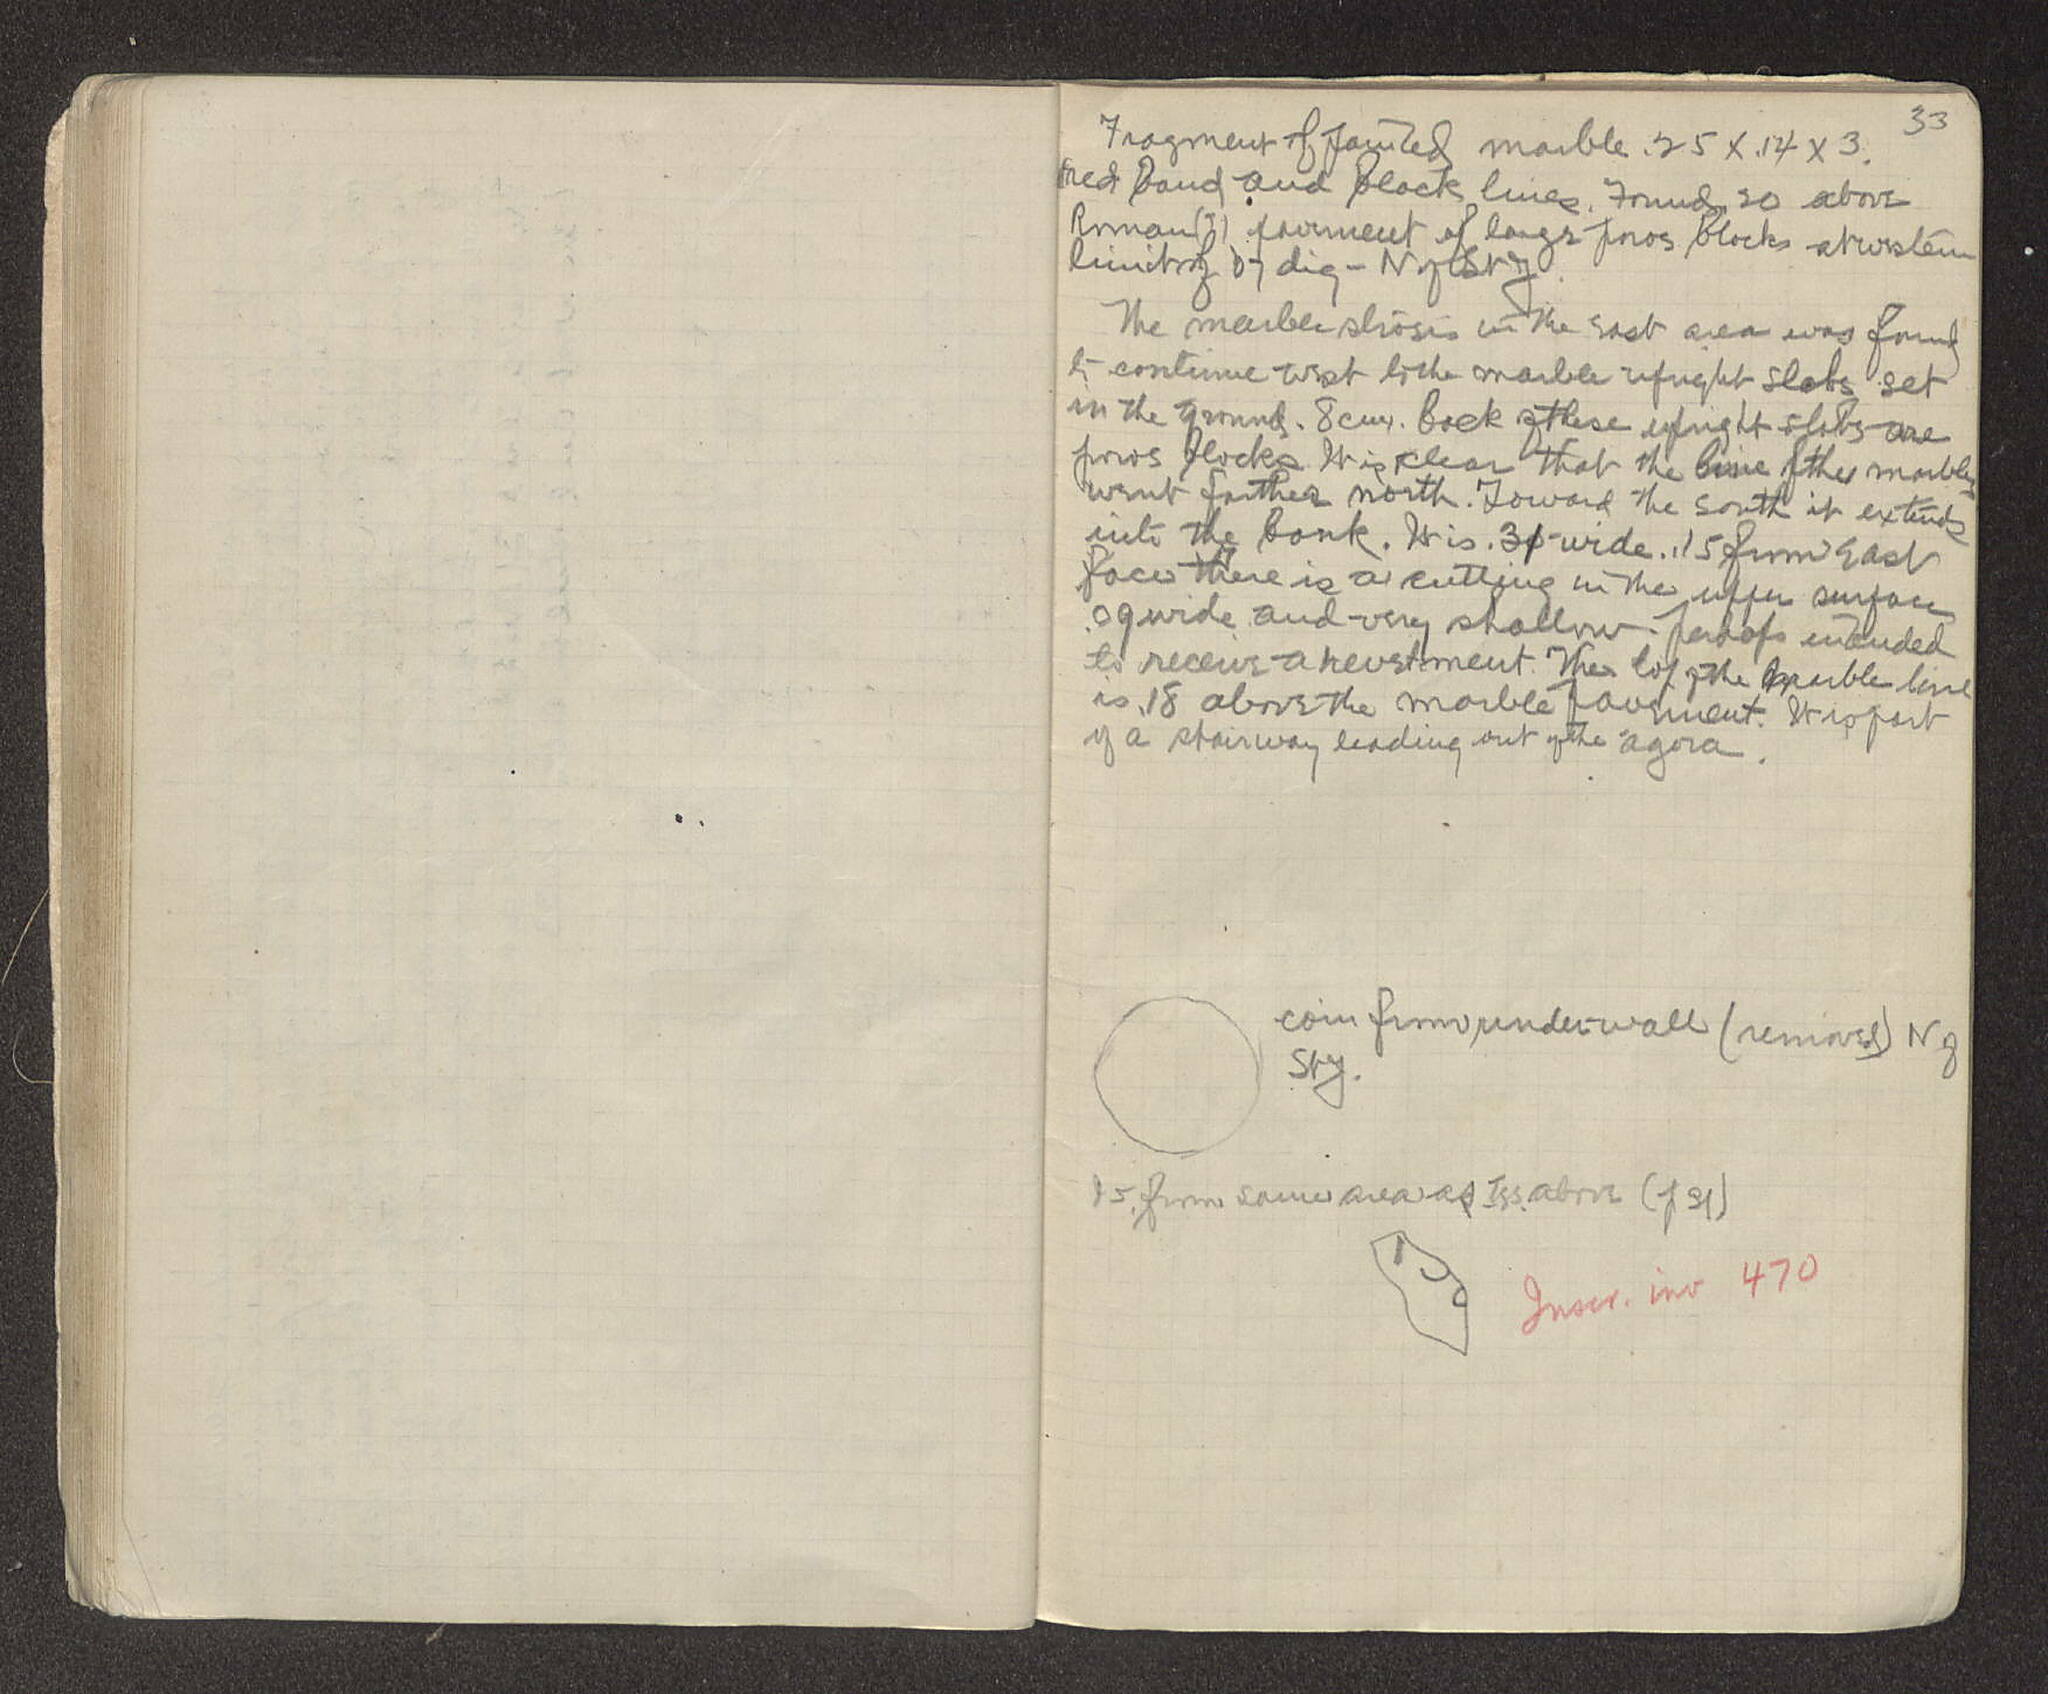 33
Fragment of painted marble .25 X .14 X 3.
red band and black lines. Found .20 above
Roman (?) pavement of large poros blocks at western
limit of dig - N of Sty.
The marble strosis in the East area was found
to continue west to the marble upright slabs set
in the ground. 8 cm. back of these upright slabs are
poros blocks. It is clear that the line of the marble
went farther north. Toward the south it extends
into the bank. It is wide. .15 from East
face there is a cutting in the upper surface
.09 wide and very shallow. perhaps intended
to receive a revetment. The top of the marble line
is .18 above the marble pavement. It is part
of a stairway leading out of the agora.
coin from under wall (removed) N of
Sty.
from same area as above
Inscr. inv 470